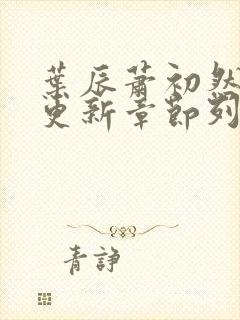 葉辰蕭初然
更新章節列
青諍